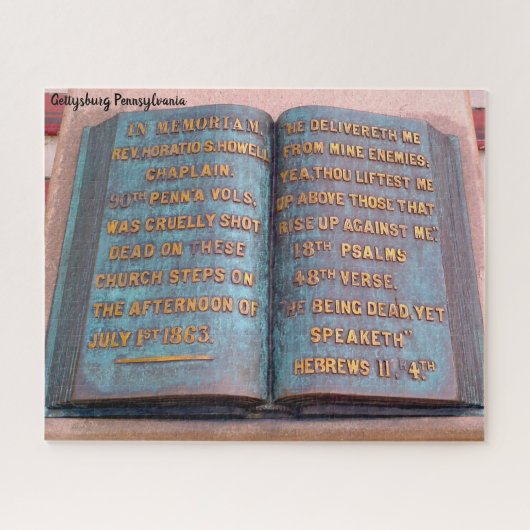 Gettysburg Pennsylvania
IN MEMORIAM.
REV. HORATIO S. HOWELL,
CHAPLAIN.
90TH PENN'A VOLS.
WAS CRUELLY SHOT
DEAD ON THESE
CHURCH STEPS ON
THE AFTERNOON OF
JULY 1ST 1863.
"HE DELIVERETH ME
FROM MINE ENEMIES:
YEA, THOU LIFTEST ME
UP ABOVE THOSE THAT
RISE UP AGAINST ME."
18TH PSALMS
48TH VERSE.
"HE BEING DEAD, YET
SPEAKETH"
HEBREWS 11. 4TH